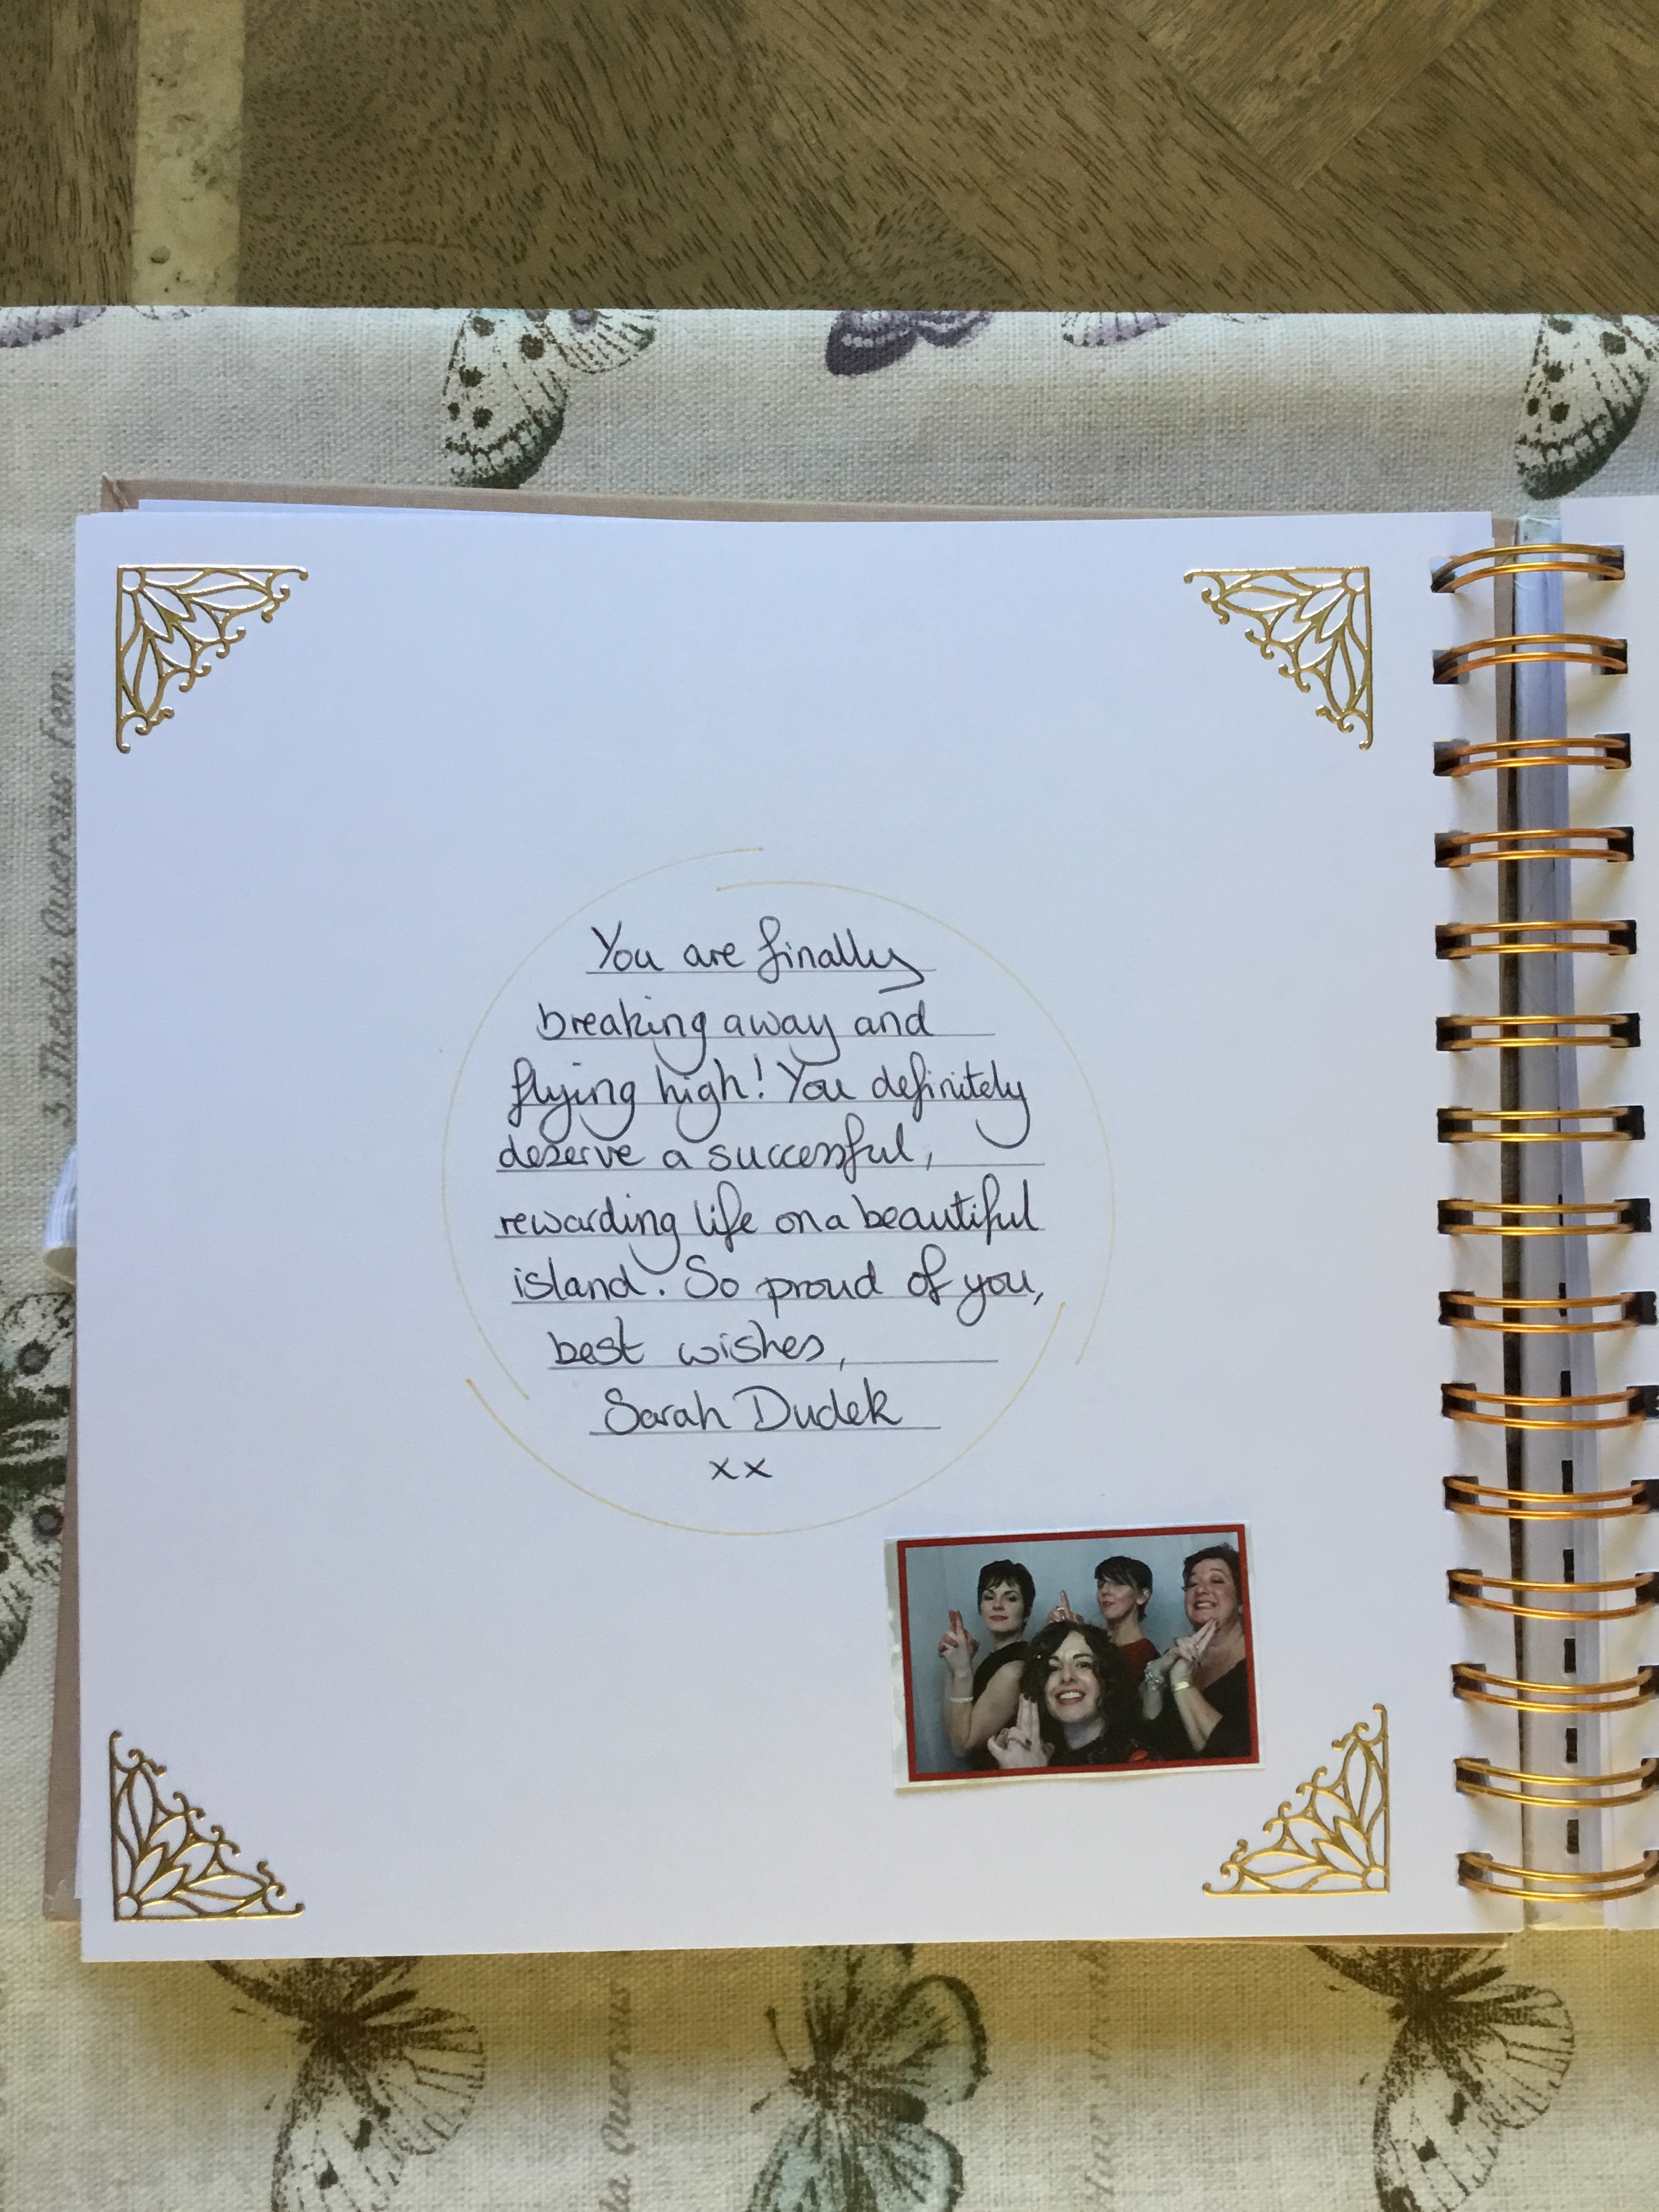 You are finally
breaking away and
flying high! You definitely
deserve a successful,
rewarding life on a beautiful
island. So proud of you,
best wishes,
Sarah Dudek
xx
3. Thecla Quercus
Quercus